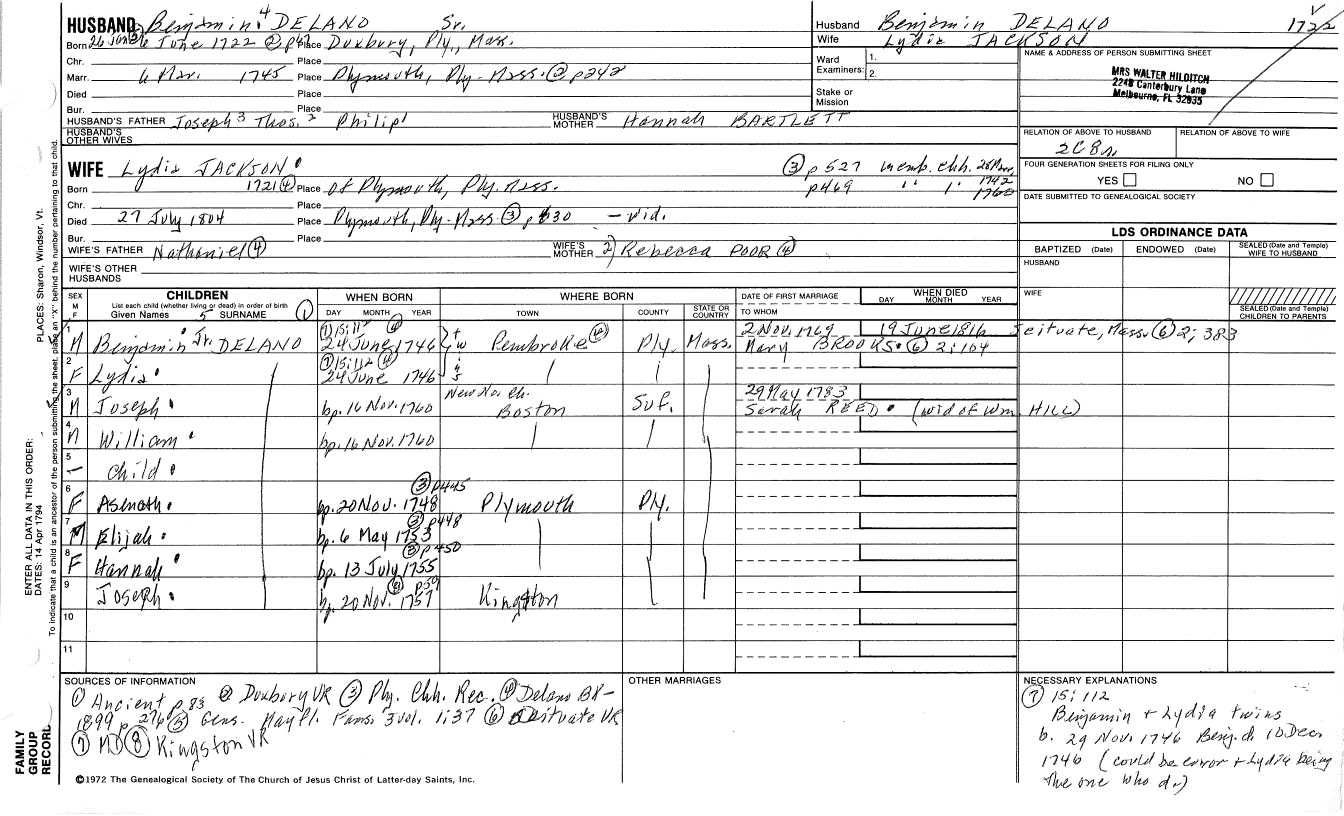 HUSBAND Benjamin 4 DELANO Sr.
Born 26 June 1722 ② p47 Place Duxbury, Ply., Mass.
Chr. Place
Marr. 6 Mar. 1745 Place Plymouth, Ply-Mass. ② p242
Died Place
Bur. Place
HUSBAND'S FATHER Joseph 3 Thos. 2 Philip 1 HUSBAND'S MOTHER Hannah BARTLETT
HUSBAND'S OTHER WIVES
Husband Benjamin DELANO 1722
Wife Lydia JACKSON
Ward Examiners: 1.
2.
Stake or Mission
NAME & ADDRESS OF PERSON SUBMITTING SHEET
MRS WALTER HILDITCH
2248 Canterbury Lane
Melbourne, FL 32935
RELATION OF ABOVE TO HUSBAND RELATION OF ABOVE TO WIFE
2C8r.
FOUR GENERATION SHEETS FOR FILING ONLY
YES NO
DATE SUBMITTED TO GENEALOGICAL SOCIETY
WIFE Lydia JACKSON ③ p527 memb. chh. 1742
Born 1721 ④ Place of Plymouth, Ply. Mass. p469 " " 1760
Chr. Place
Died 27 July 1804 Place Plymouth, Ply-Mass ③ — wid.
Bur. Place
WIFE'S FATHER Nathaniel ④ WIFE'S MOTHER 2) Rebecca POOR ④
WIFE'S OTHER HUSBANDS
LDS ORDINANCE DATA
BAPTIZED (Date) ENDOWED (Date) SEALED (Date and Temple) WIFE TO HUSBAND
HUSBAND
WIFE
SEALED (Date and Temple) CHILDREN TO PARENTS
SEX M F CHILDREN List each child (whether living or dead) in order of birth Given Names 5 SURNAME ① WHEN BORN DAY MONTH YEAR WHERE BORN TOWN COUNTY STATE OR COUNTRY DATE OF FIRST MARRIAGE TO WHOM WHEN DIED DAY MONTH YEAR
⑦ 15:112 ④ 2 Nov. 1769 19 June 1816 Scituate, Mass. ⑥ 2; 383
1 M Benjamin Jr. DELANO 24 June 1746 twins Pembroke ④ Ply. Mass. Mary BROOKS ⑥ 2:104
⑦ 15:112 ④
2 F Lydia 24 June 1746
New No. Ch. 29 May 1783
3 M Joseph bp. 16 Nov. 1760 Boston Suf. Sarah REED (wid of Wm. HILL)
4 M William bp. 16 Nov. 1760
5 — child
③ p445
6 F Asenath bp. 20 Nov. 1748 Plymouth Ply.
③ p448
7 M Elijah bp. 6 May 1753
③ p450
8 F Hannah bp. 13 July 1755
⑧ p59
9 Joseph bp. 20 Nov. 1757 Kingston
10
11
SOURCES OF INFORMATION
① Ancient p83 ② Duxbury VR ③ Ply. Chh. Rec. ④ Delano BK-
1899 p 276 ⑤ Gens. Mayfl. Fams. 3 vol. 1:37 ⑥ Scituate VR
⑦ MD ⑧ Kingston VR
OTHER MARRIAGES
NECESSARY EXPLANATIONS
⑦ 15:112
Benjamin + Lydia twins
b. 29 Nov. 1746 Benj. d. 10 Dec.
1746 (could be error + Lydia being
the one who d.)
©1972 The Genealogical Society of The Church of Jesus Christ of Latter-day Saints, Inc.
FAMILY GROUP RECORD
ENTER ALL DATA IN THIS ORDER:
DATES: 14 Apr 1794 PLACES: Sharon, Windsor, Vt.
To indicate that a child is an ancestor of the person submitting the sheet, place an "X" behind the number pertaining to that child.